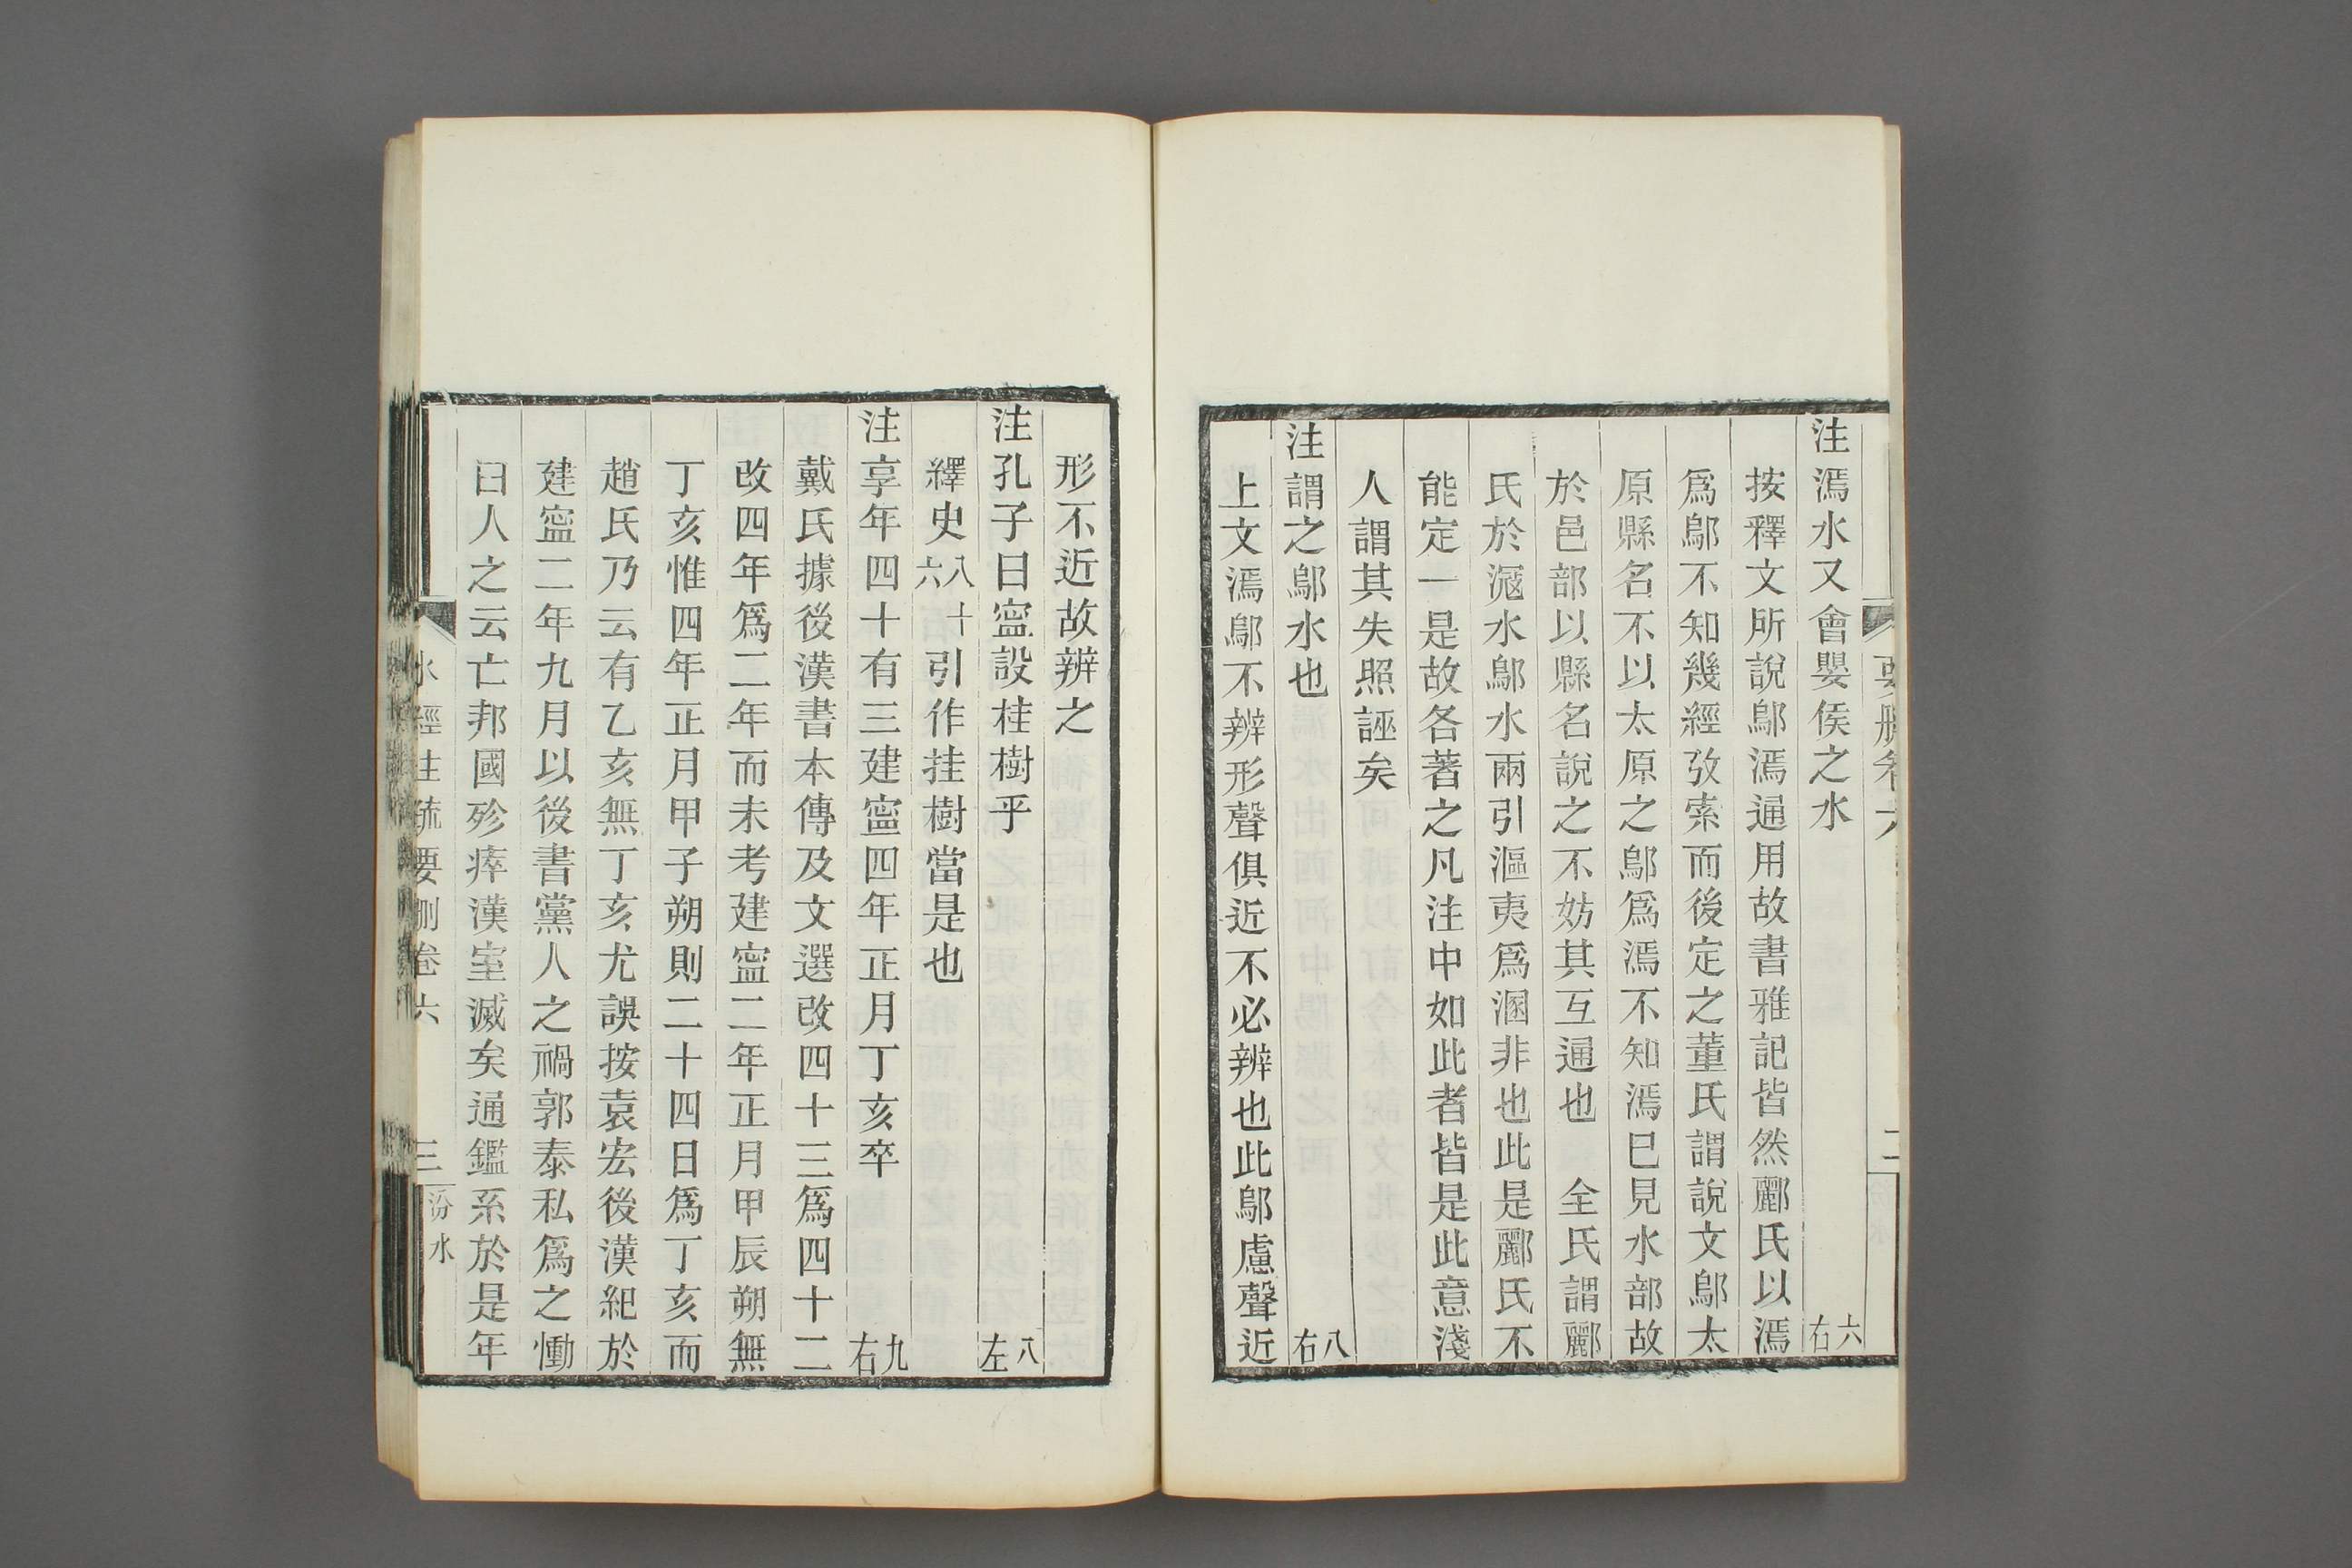 要刪卷六
二
注溤水又會嬰侯之水 六右
按釋文所說鄔溤通用故書雅記皆然酈氏以溤
爲鄔不知幾經攷索而後定之董氏謂說文鄔太
原縣名不以太原之鄔爲溤不知溤巳見水部故
於邑部以縣名說之不妨其互通也 全氏謂酈
氏於滱水鄔水兩引漚夷爲溷非也此是酈氏不
能定一是故各著之凡注中如此者皆是此意淺
人謂其失照誣矣
注謂之鄔水也 八右
上文溤鄔不辨形聲俱近不必辨也此鄔慮聲近
形不近故辨之
注孔子曰寍設桂樹乎 八左
繹史八十六引作挂樹當是也
注享年四十有三建寍四年正月丁亥卒 九右
戴氏據後漢書本傳及文選改四十三爲四十二
改四年爲二年而未考建寍二年正月甲辰朔無
丁亥惟四年正月甲子朔則二十四日爲丁亥而
趙氏乃云有乙亥無丁亥尤誤按袁宏後漢紀於
建寍二年九月以後書黨人之禍郭泰私爲之慟
曰人之云亡邦國殄瘁漢室滅矣通鑑系於是年
水經注疏要刪卷六
三
汾水